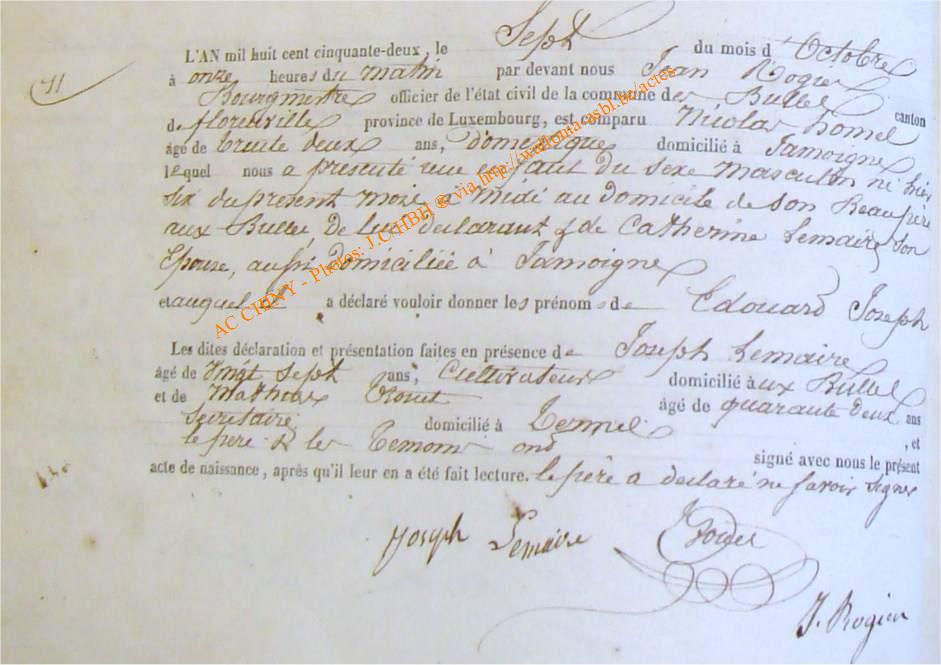 11
L'AN mil huit cent cinquante-deux, le Sept du mois d'Octobre
à onze heures du matin par devant nous Jean Rogier
Bourgmestre officier de l'état civil de la commune des Bulles canton
de florenville province de Luxembourg, est comparu Nicolas
âgé de trente deux ans, Domestique domicilié à Jamoigne
lequel nous a présenté un enfant du sexe masculin né hier
six du present mois à midi au domicile de son Beau pere
aux Bulles de lui declarant & de Catherine Lemaire son
Epouse, aussi domiciliée à Jamoigne
et auquel il a déclaré vouloir donner les prénoms de Edouard Joseph
Les dites déclaration et présentation faites en présence de Joseph Lemaire
âgé de Vingt Sept ans, Cultivateur domicilié aux Bulles
et de Mathieu âgé de quarante deux ans
Secretaire domicilié à Termes , et
le père & les Temoins ont signé avec nous le présent
acte de naissance, après qu'il leur en a été fait lecture. le père a declaré ne savoir signer
Joseph Lemaire
J. Rogier
AC CHINY - Photos: J.CHBH @ via http://wallonia-asbl.be/actes